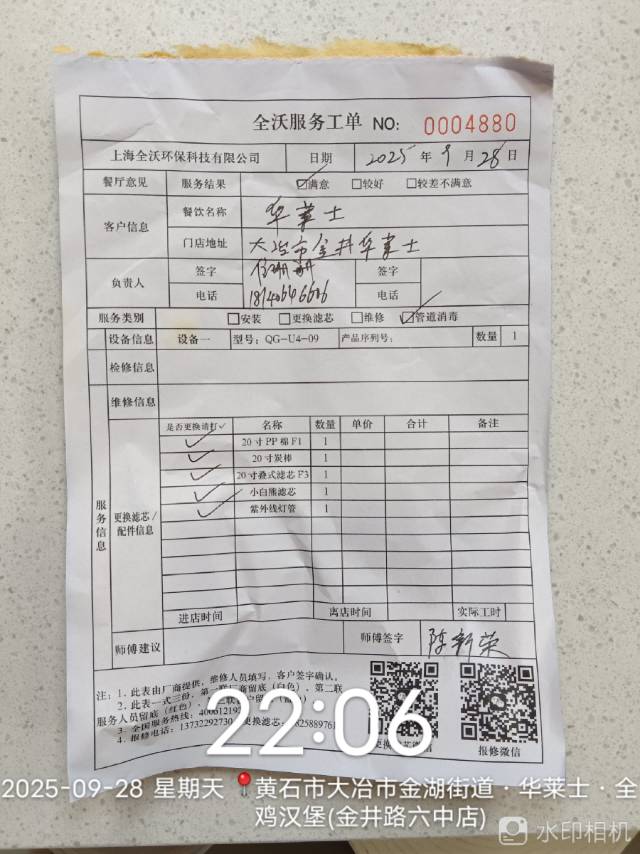 全沃服务工单 NO: 0004880
上海全沃环保科技有限公司 日期 2025 年 9 月 28 日
餐厅意见 服务结果 ☑满意 □较好 □较差不满意
客户信息 餐饮名称 华莱士
门店地址 大冶市金井华莱士
负责人 签字 签字
电话 电话
服务类别 □安装 □更换滤芯 □维修 ☑管道消毒
设备信息 设备一 型号: QG-U4-09 产品序列号: 数量 1
检修信息
维修信息
服务信息
更换滤芯/配件信息
是否更换请打✓ 名称 数量 单价 合计 备注
✓ 20寸PP棉F1 1
✓ 20寸炭棒 1
✓ 20寸叠式滤芯F3 1
✓ 小白熊滤芯 1
✓ 紫外线灯管 1
进店时间 离店时间 实际工时
师傅建议 师傅签字 陈新荣
注: 1. 此表由厂商提供, 维修人员填写, 客户签字确认。
2. 此表一式三份, 第一联厂商留底(白色), 第二联
服务人员留底(红色),
3. 全国服务热线: 4006121
4. 报修电话: 13732292730 更换滤芯:
报修微信
22:06
2025-09-28 星期天 黄石市大冶市金湖街道·华莱士·全
鸡汉堡(金井路六中店)
水印相机